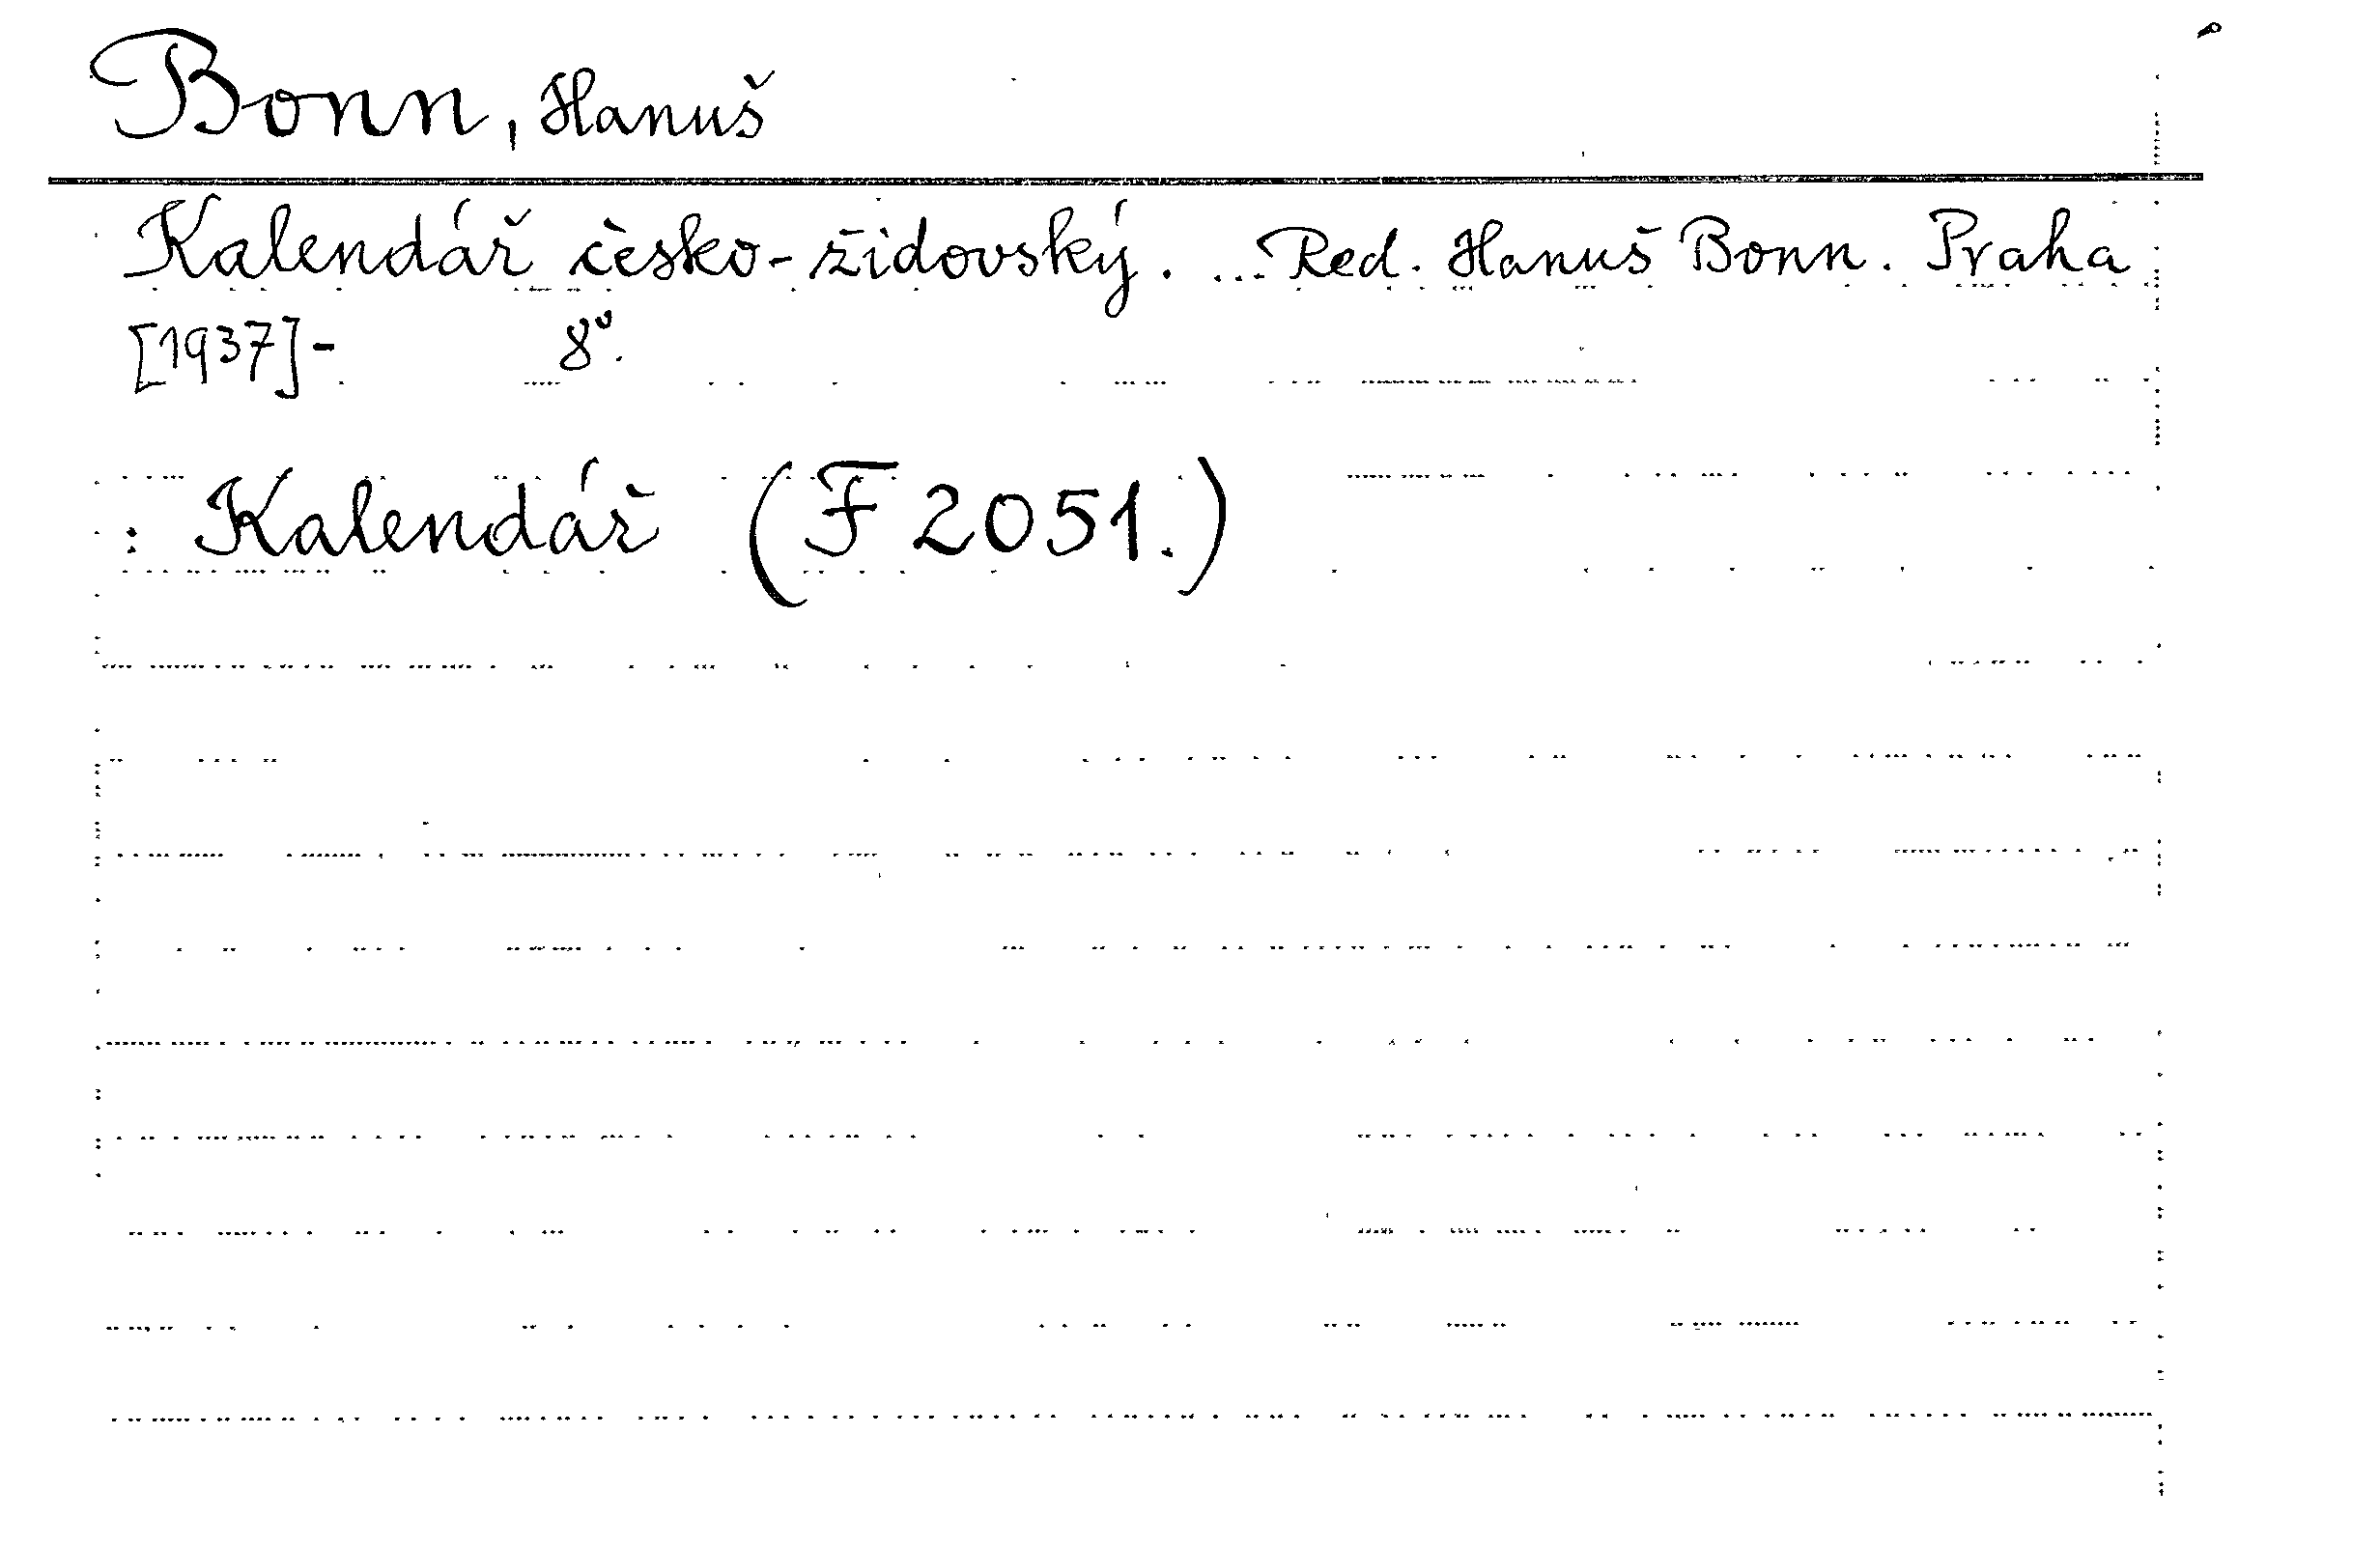 Bonn, Hanuš
Kalendář česko-židovský. ... Red. Hanuš Bonn. Praha
[1937]- 8°.
: Kalendář (F 2051.)